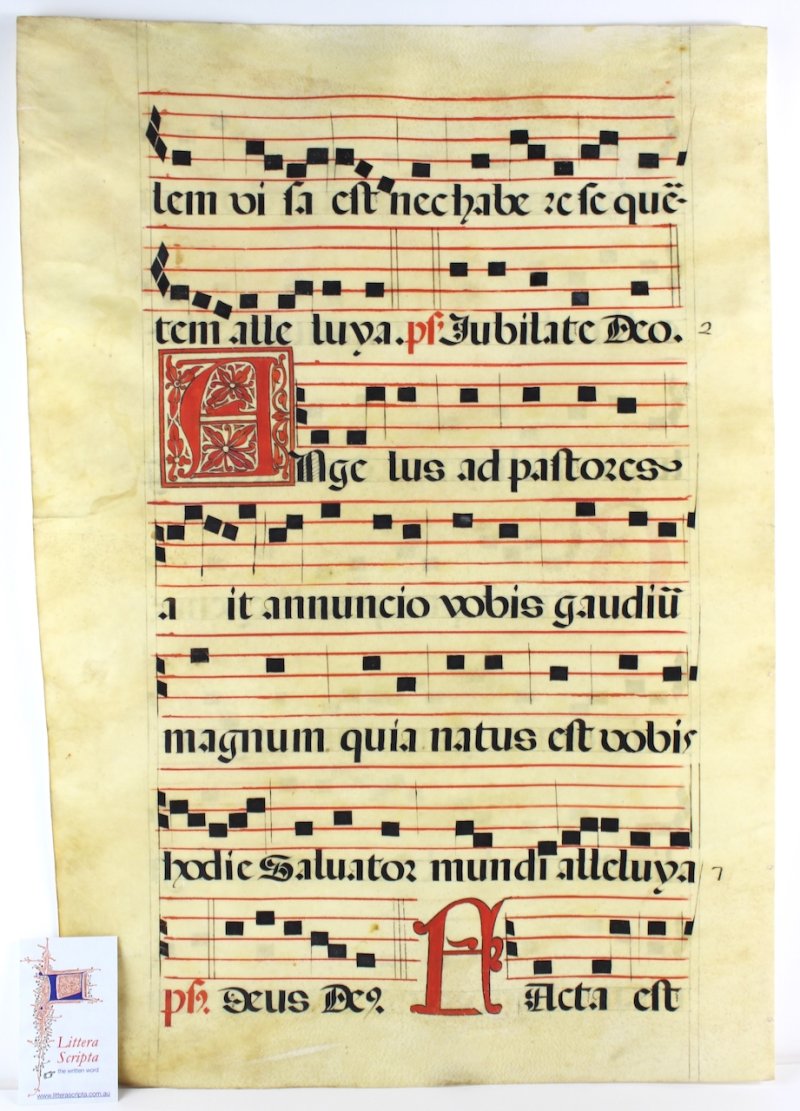 lem vi sa est nec habe re se quē-
tem alle luya. ps. Jubilate Deo. 2
Ange lus ad pastores
a it annuncio vobis gaudiū
magnum quia natus est vobis
hodie Saluator mundi alleluya 7
ps. Deus De9. F Acta est
Littera
Scripta
the written word
www.litterascripta.com.au